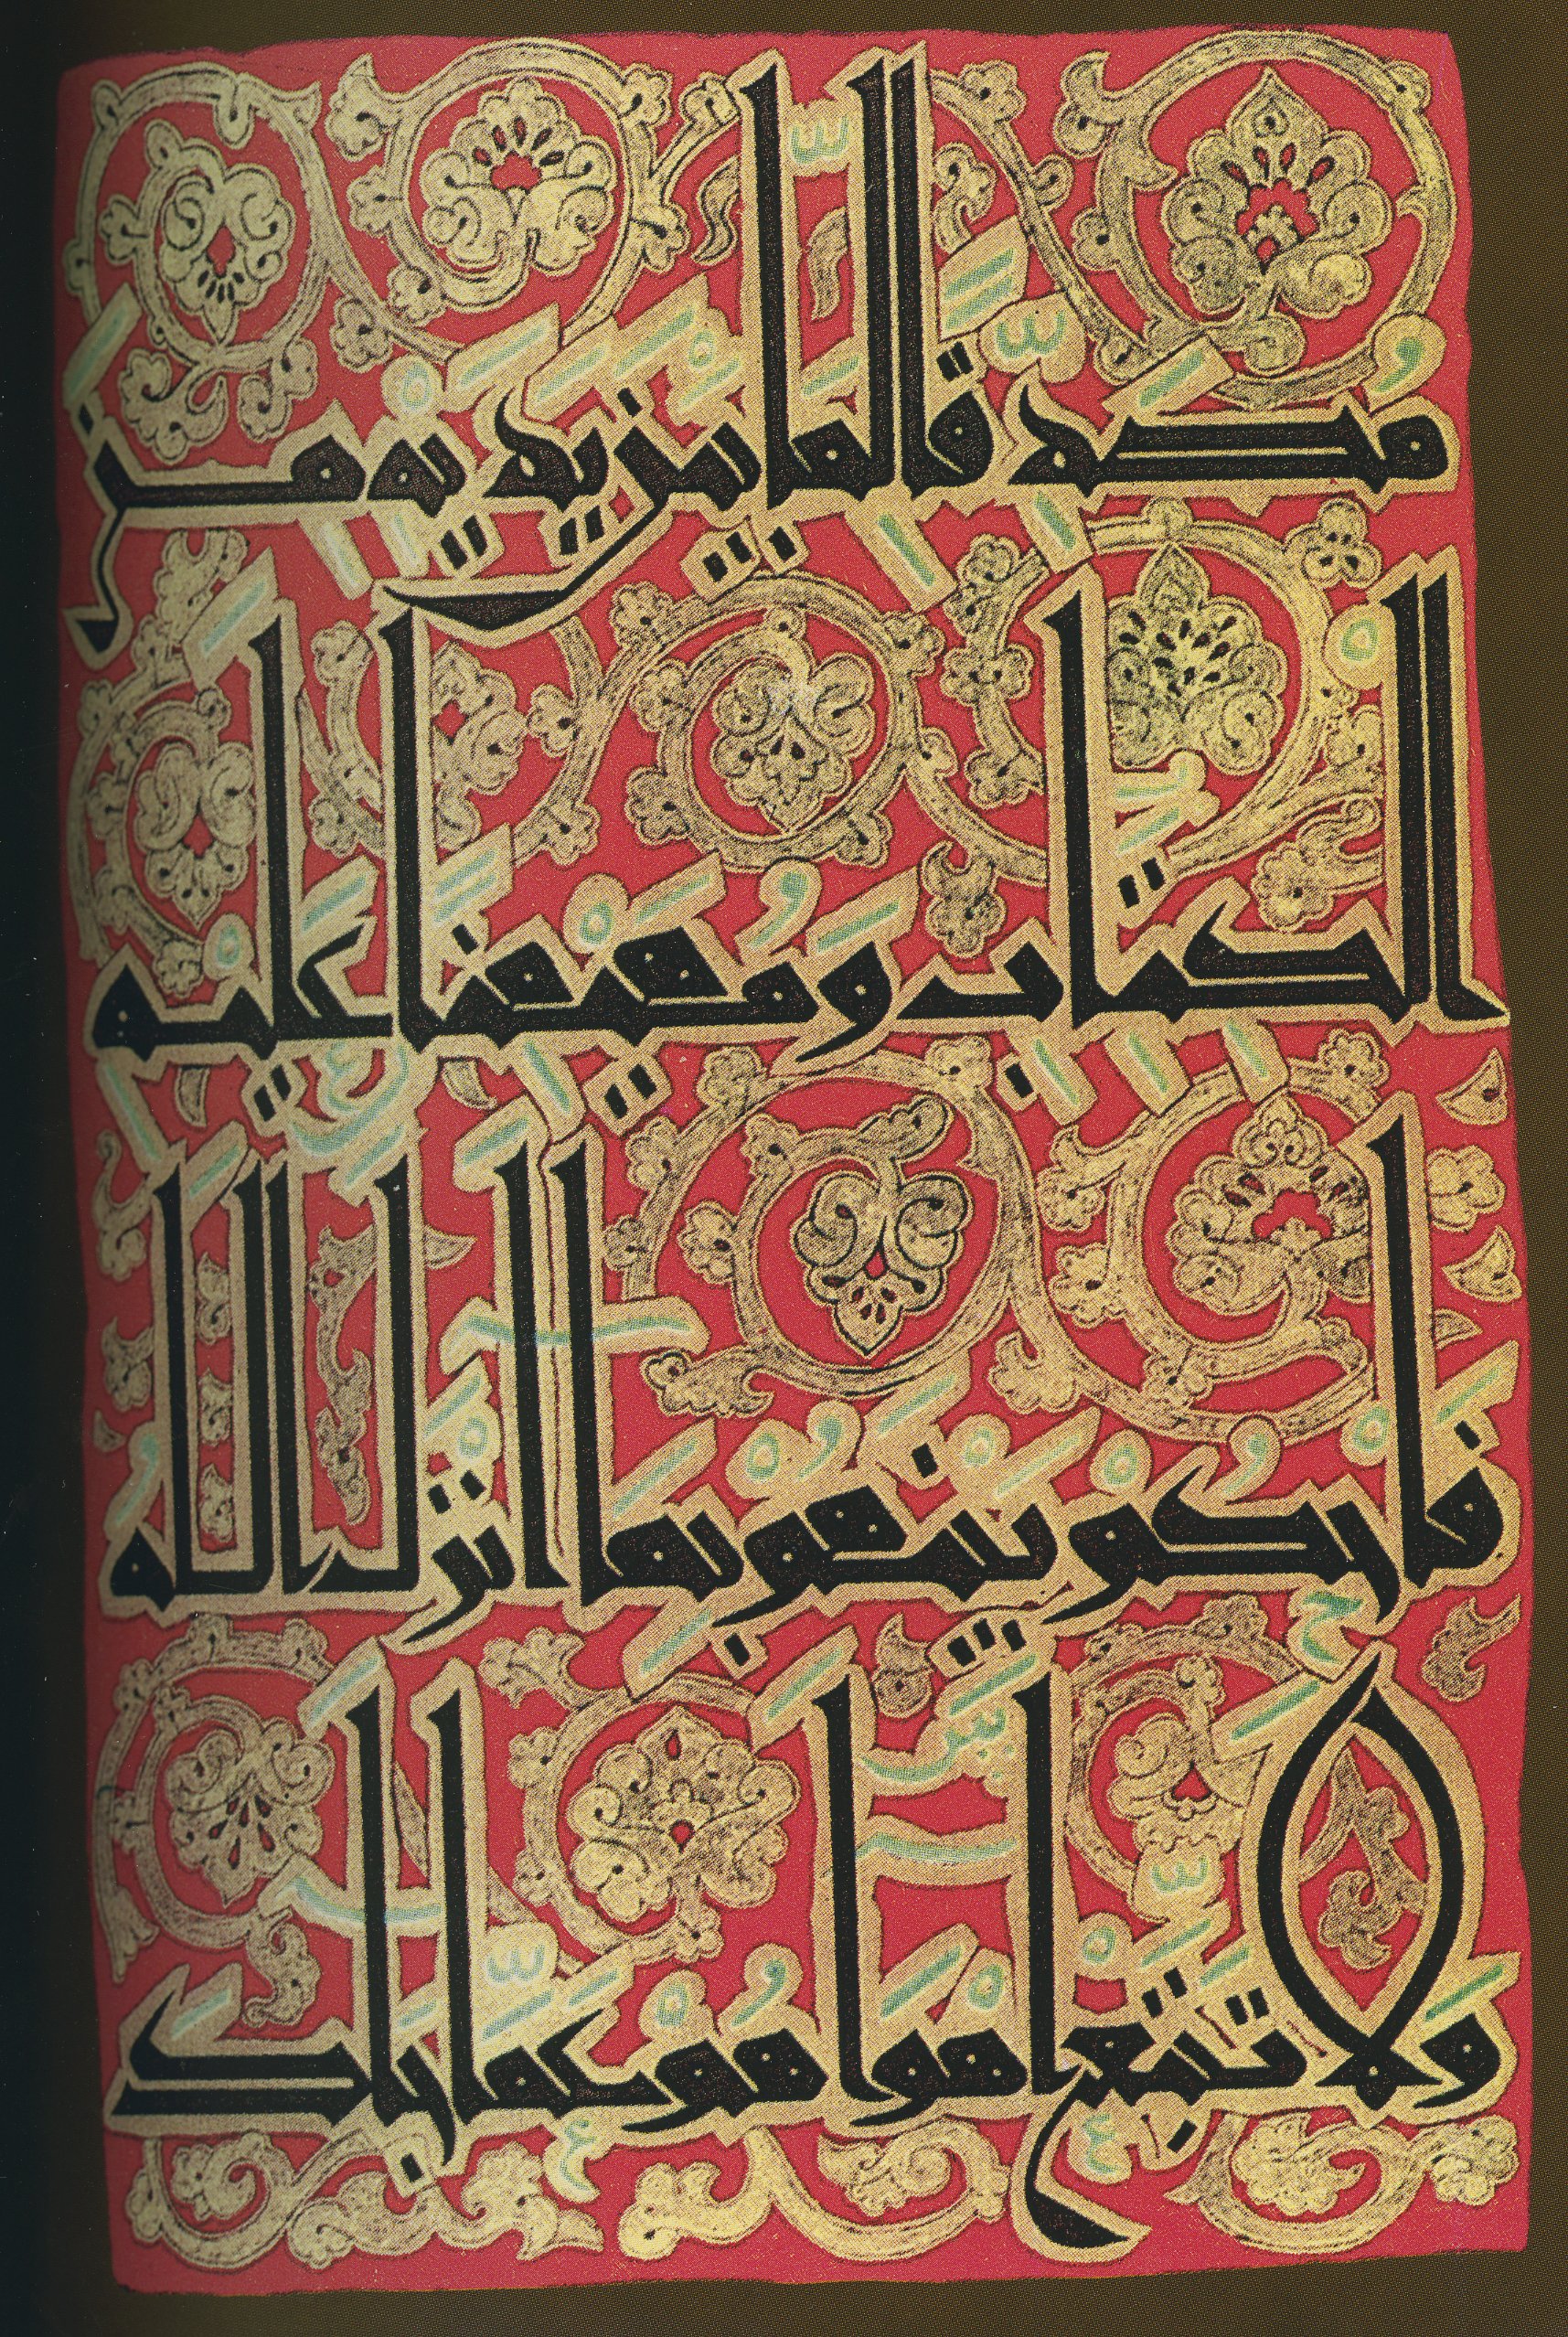 مُصَدِّقًا لِّمَا بَيْنَ يَدَيْهِ مِنَ
الْكِتَابِ وَمُهَيْمِنًا عَلَيْهِ
فَاحْكُم بَيْنَهُم بِمَا أَنزَلَ اللَّهُ
وَلَا تَتَّبِعْ أَهْوَاءَهُمْ عَمَّا جَاءَكَ